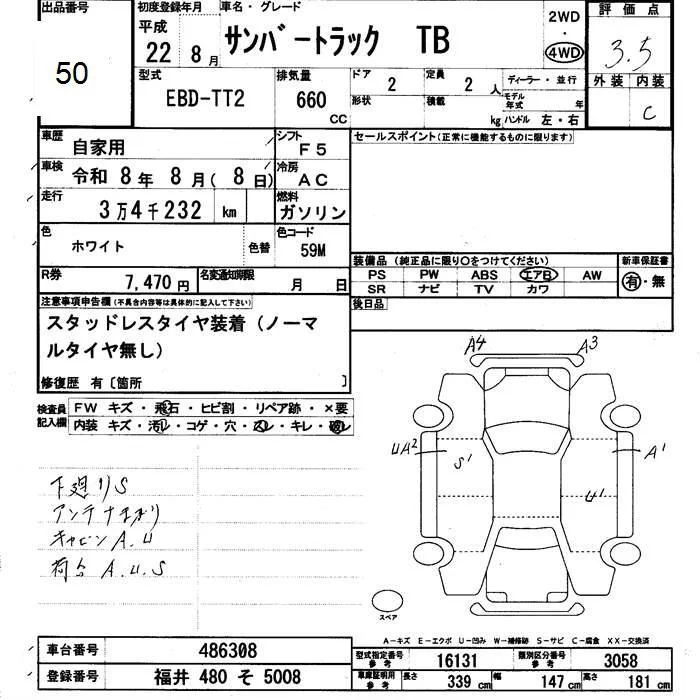 出品番号 初度登録年月 車名・グレード 評価点
50 平成 22 8月 サンバートラック TB 2WD 4WD 3.5
外装 内装 C
型式 排気量 ドア 定員 ディーラー・並行
EBD-TT2 660 CC 2 2人 モデル年式 年
形状 積載 kg ハンドル 左・右
車歴 自家用 シフト F5 セールスポイント(正常に機能するものに限ります)
車検 令和 8年 8月(8日) 冷房 AC
走行 3万4千232 km 燃料 ガソリン
色 ホワイト 色替 色コード 59M
装備品 (純正品に限り○をつけてください) 新車保証書
PS PW ABS エアB AW 有・無
SR ナビ TV カワ
R券 7,470円 名変通知期限 月 日
後日品
注意事項申告欄(不具合内容等は具体的に記入して下さい)
スタッドレスタイヤ装着(ノーマ
ルタイヤ無し)
修復歴 有〔箇所 〕
検査員記入欄 FW キズ・飛石・ヒビ割・リペア跡・×要
内装 キズ・汚レ・コゲ・穴・スレ・キレ・破レ
A4 A3
UA2 S1 U1 A1
下廻りS
アンテナまがり
キャビンA.U
荷台 A.U.S
スペア
A-キズ E-エクボ U-凹み W-補修跡 S-サビ C-腐食 XX-交換済
車台番号 486308
登録番号 福井 480 そ 5008
型式指定番号 参考 16131 類別区分番号 参考 3058
車庫証明用 参考 長さ 339cm 幅 147cm 高さ 181cm